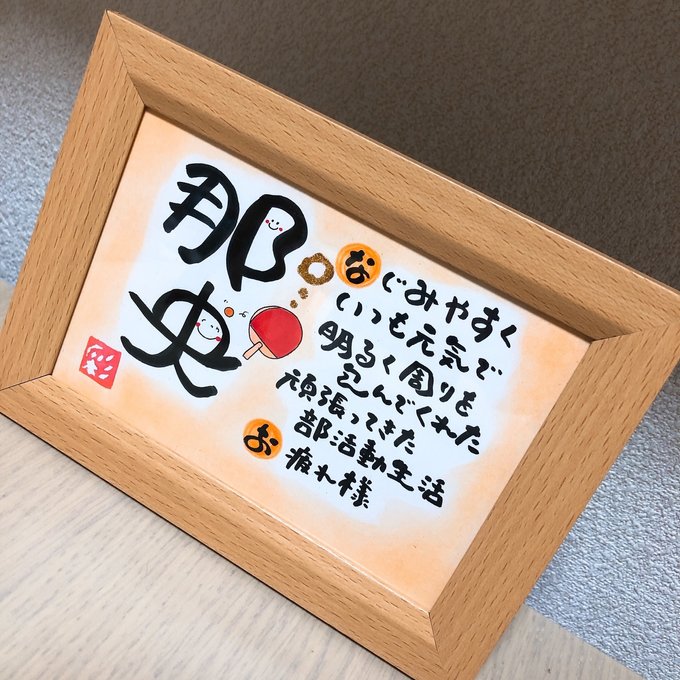 那史
なじみやすく
いつも元気で
明るく周りを
包んでくれた
頑張ってきた
部活動生活
お疲れ様